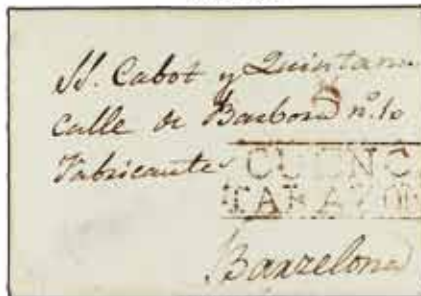 SS. Cabot y Quintana
calle de Barbora nº. 10
Fabricantes
CUENC
TARAZON
Barzelona